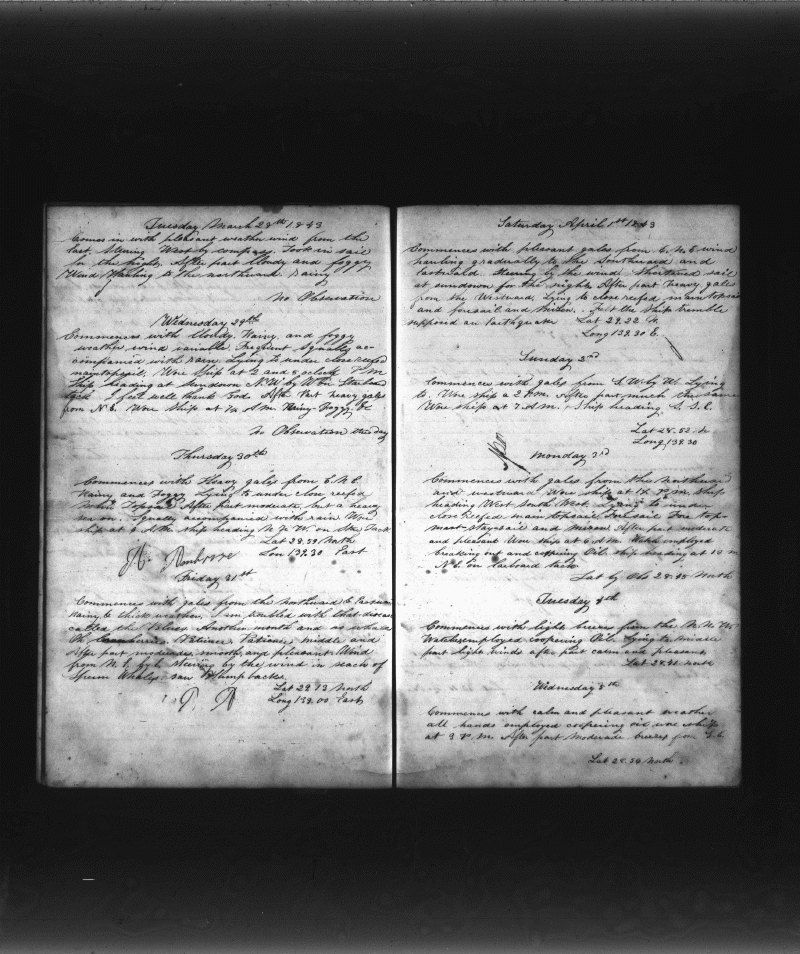 Tuesday March 28th 1843
Comes in with pleasant weather wind from the
East. Stering West by compass. Took in sail
for the night. After part Cloudy and foggy
Wind Hauling to the northward rainy
No Observation
Wednesday 29th
Commences with Cloudy, Rainy, and foggy
weather wind variable. Frequent Squalls ac-
companied with rain. Lying to under close reefed
maintopsail. Wore Ship at 2 and 8 oclock P M
Ship heading at Sundown N.W. by W on Starboard
tack. I feel well thank God. After Part heavy gales
from N.E. Wore Ship at A.M. Rainy Foggy &c
No Observation this day
Thursday 30th
Commences with Heavy gales from E.N.E.
Rainy and Foggy Lying to under close reefed
Main Topsail. After part moderate, but a heavy
sea on. Squally accompanied with rain. Wore
ship at 6 A.M. ship heading on Tack
Lat 28.59 North
Lon 139.30 East
Friday 31st
Commences with gales from the northward &
Rainy & thick weather. I am troubled with that disease
called the Blues. Another month and no whale
Oh Patience, Patience, middle and
After part moderate, smooth and pleasant Wind
from N.E. by E. Steering by the wind in search of
Sperm Whales saw Humpbacks.
Lat 29.13 North
Long 139.00 East
Saturday April 1st 1843
Commences with pleasant gales from E.N.E. wind
hauling gradually to the Southward and
Eastward. Steering by the wind. Shortened sail
at sundown for the night. After part heavy gales
from the Westward, Lying to close reefed main topsail
and foresail and Mizen. Felt the Ship tremble
supposed an Earthquake Lat 29.22 N.
Long 139.30 E.
Sunday 2nd
Commences with gales from S.W. by W. Lying
to. Wore ship at 2 P.M. After part much the same
Wore ship at 7 A.M. Ship heading S.S.E.
Lat 28.52 N
Long 139.30
Monday 3rd
Commences with gales from the northward
and westward Wore ship at P.M. ship
heading West South West. Lying to under
close Reefed main topsail, Foresail, Fore top-
mast-staysail and mizen. After part moderate
and pleasant Wore ship at 6 A.M. Watch employed
breaking out and coopering Oil. Ship heading at 10
N.E. on larboard tack.
Lat by Obs 28.45 North
Tuesday 4th
Commences with light breezes from the N.N.W.
Watch employed coopering Oil. Lying to middle
part light winds after part calm and pleasant.
Lat 28.41 North
Wednesday 5th
Commences with calm and pleasant weather
all hands employed coopering oil wore ship
at 3 P.M. After part Moderate breezes from
Lat 28.36 North